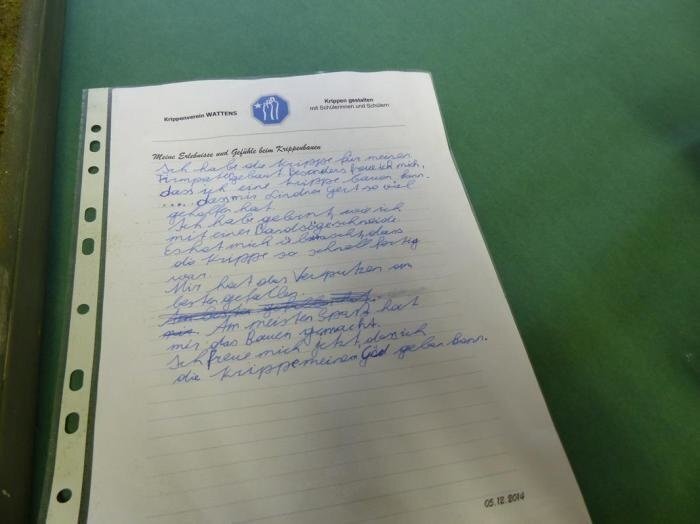 Krippenverein WATTENS
Krippen gestalten
mit Schülerinnen und Schülern
Meine Erlebnisse und Gefühle beim Krippenbauen
Ich habe die Krippe für meinen
Firmpatn gebaut. Besonders freue ich mich,
dass ich eine Krippe bauen kann.
..... dass mir Lindner Gert so viel
geholfen hat.
Ich habe gelernt, wie ich
mit einer Bandsäge schneide.
Es hat mich überrascht, dass
die Krippe so schnell fertig
war.
Mir hat das Verputzen am
besten gefallen.
Am meisten Spaß hat
mir das Bauen gemacht.
Ich freue mich jetzt, dass ich
die Krippe meinen Göd geben kann.
05.12.2014